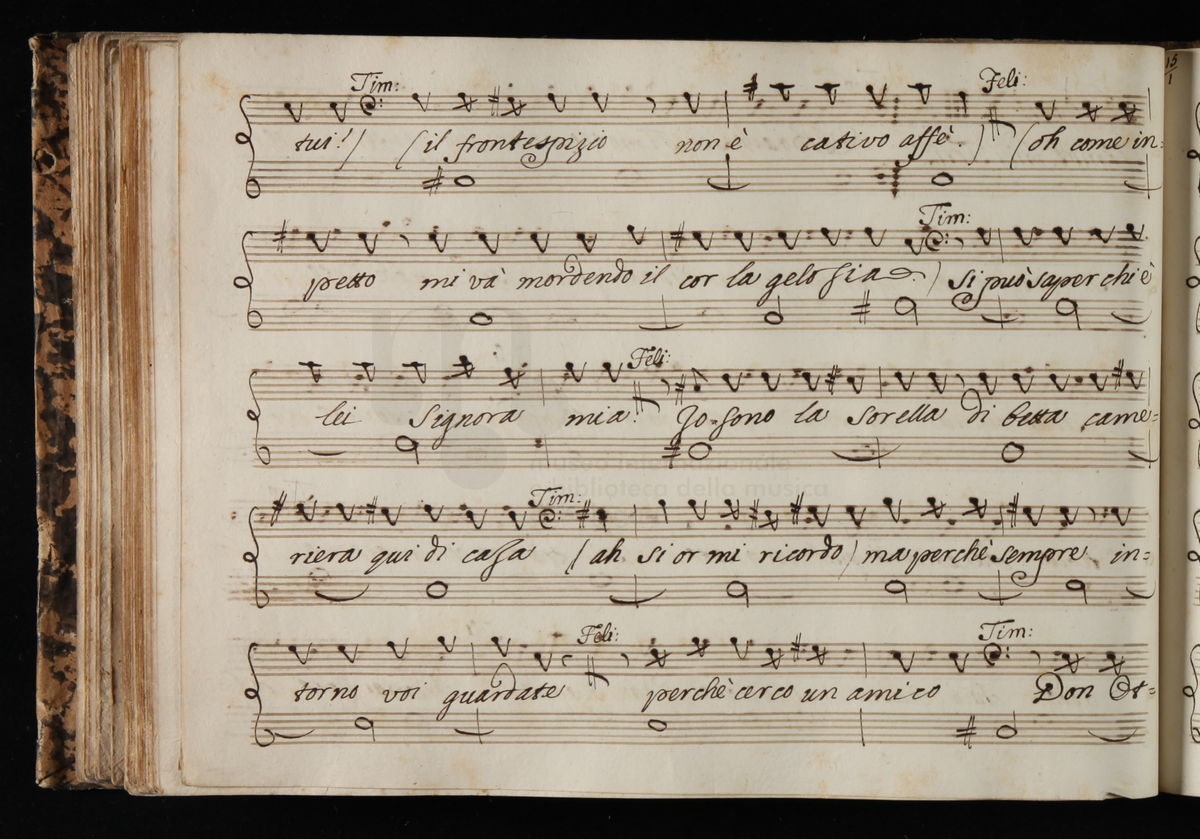 Tim: Feli:
tui!) (il frontespizio non è cativo affè.) (oh come in=
Tim:
petto mi và mordendo il cor la gelosia.) Si può saper chi è
Feli:
lei Signora mia! Jo sono la sorella di betta came=
museo internazionale
biblioteca della musica
Tim:
riera qui di casa (ah si or mi ricordo) ma perchè sempre in=
Feli: Tim:
torno voi guardate perchè cerco un amico Don Ot=
15
1